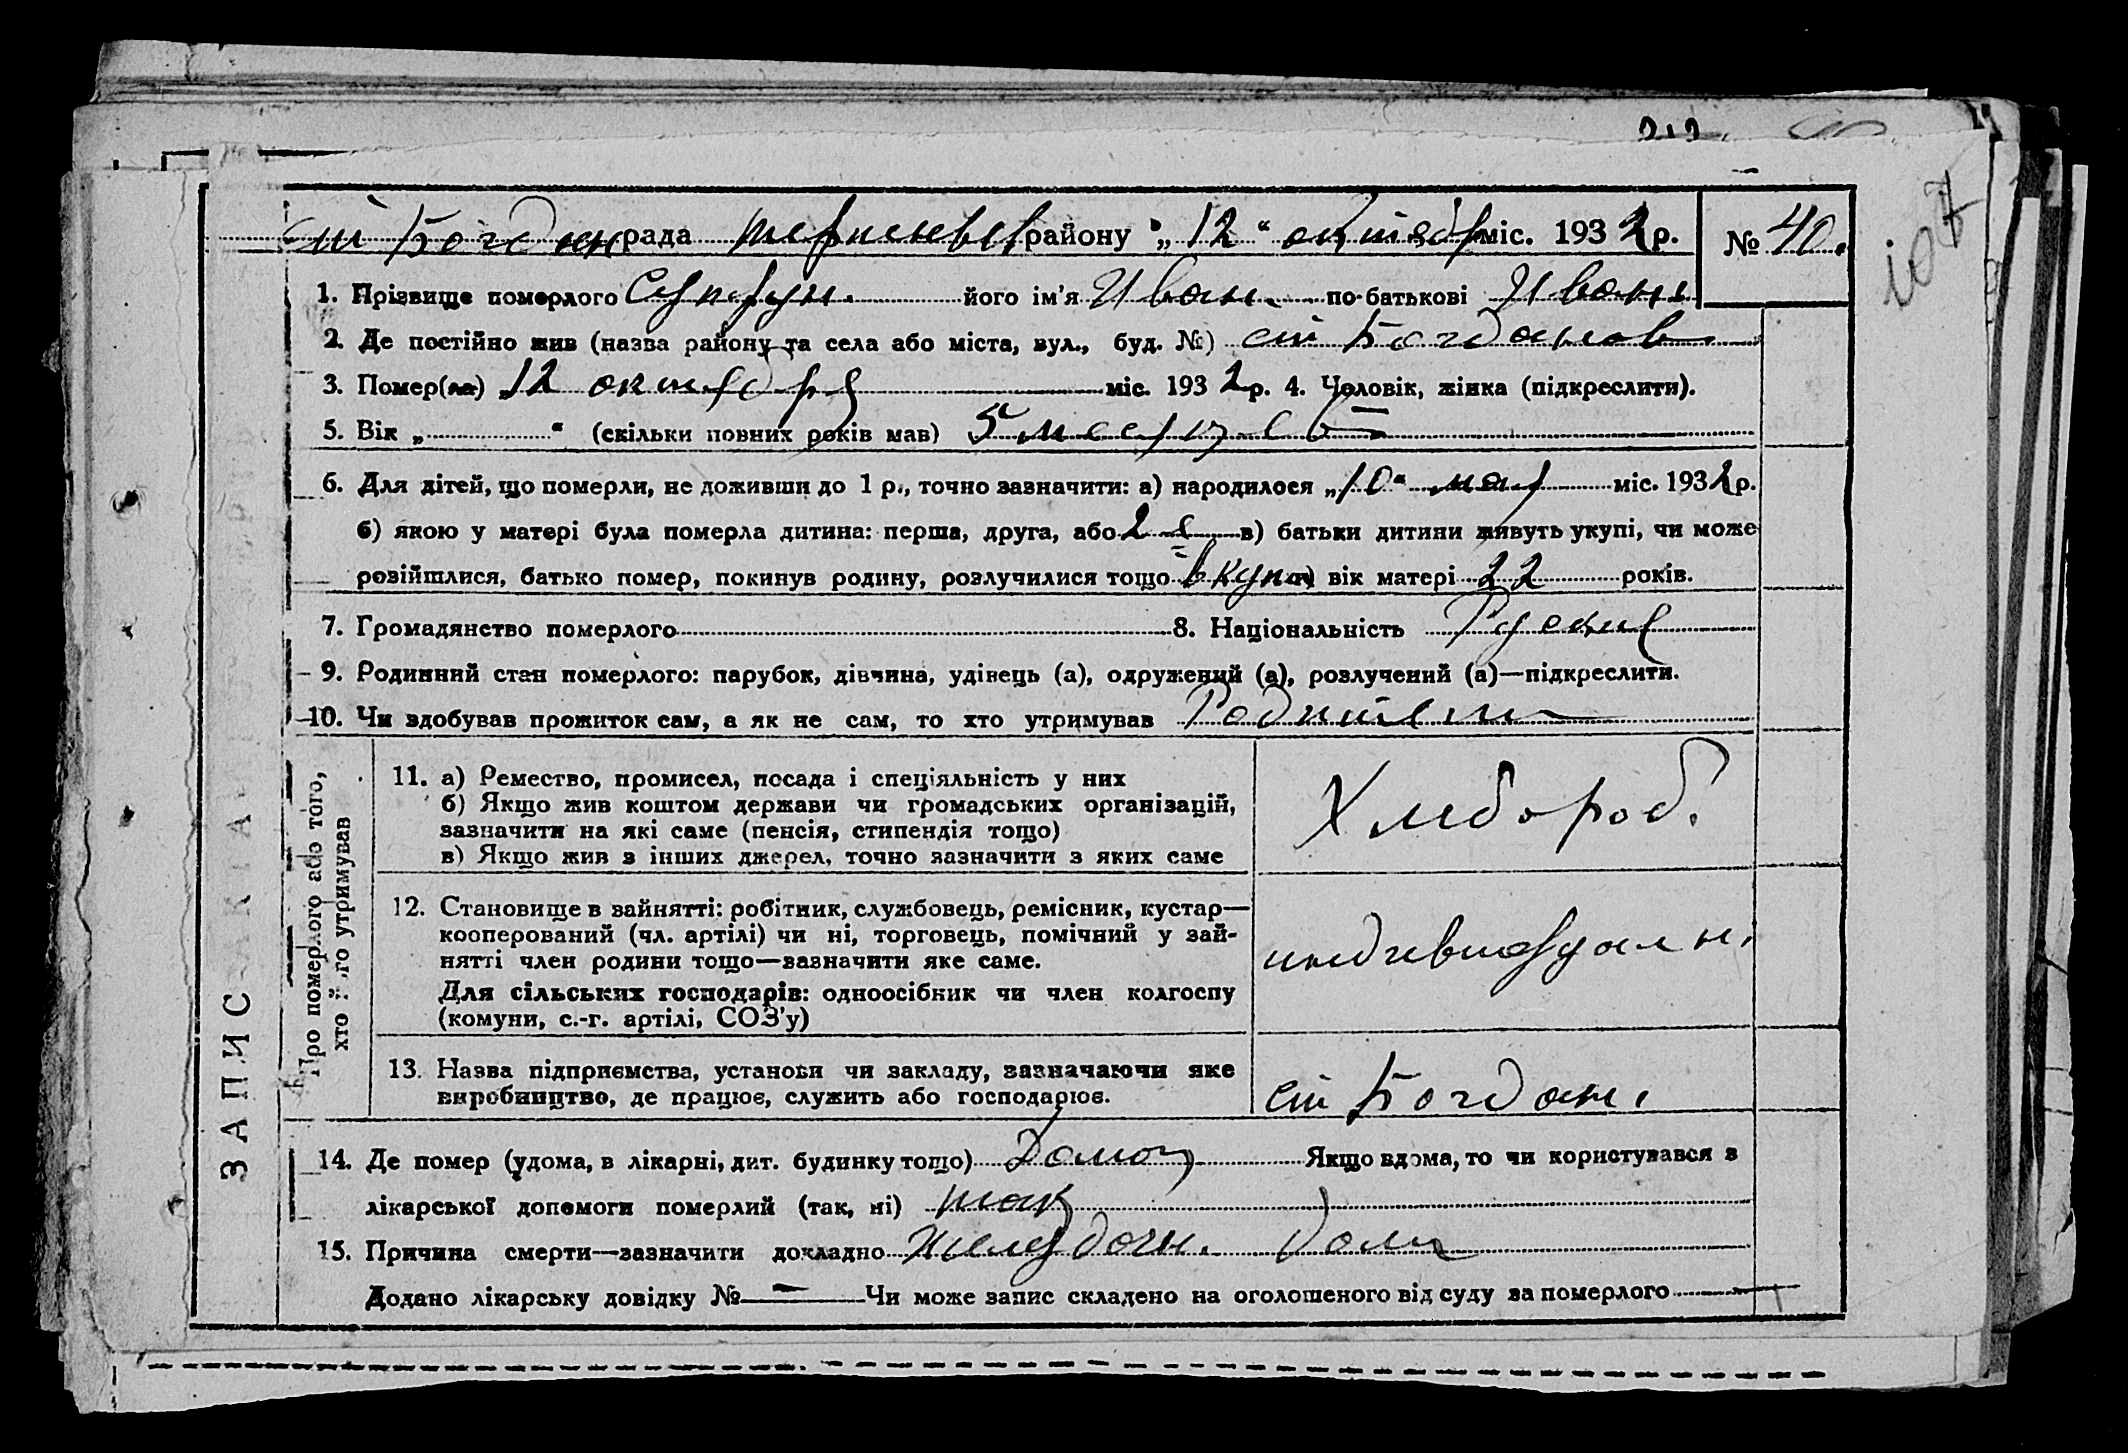 ст Богдан рада района „12“ октября міс. 1932 р. № 40.
107
1. Прізвище померлого Супрун. його ім'я Иван. по-батькові Иван.
2. Де постійно жив (назва району та села або міста, вул., буд. №) ст Богданов
3. Помер(ла) 12 октября міс. 1932 р. 4. Чоловік, жінка (підкреслити).
5. Вік „ “ (скільки повних років мав) 5 месяцев
6. Для дітей, що померли, не доживши до 1 р., точно зазначити: а) народилося „10“ мая міс. 1932 р.
б) якою у матері була померла дитина: перша, друга, або 2 я в) батьки дитини живуть укупі, чи може
розійшлися, батько помер, покинув родину, розлучилися тощо вкупи г) вік матері 22 років.
7. Громадянство померлого 8. Національність Руский
9. Родинний стан померлого: парубок, дівчина, удівець (а), одружений (а), розлучений (а)—підкреслити.
10. Чи здобував прожиток сам, а як не сам, то хто утримував Родители
ЗАПИС
Про померлого або того,
хто його утримував
11. а) Ремество, промисел, посада і спеціяльність у них
б) Якщо жив коштом держави чи громадських організацій,
зазначити на які саме (пенсія, стипендія тощо)
в) Якщо жив з інших джерел, точно зазначити з яких саме
Хлебороб.
12. Становище в зайнятті: робітник, службовець, ремісник, кустар—
кооперований (чл. артілі) чи ні, торговець, помічний у зай-
нятті член родини тощо—зазначити яке саме.
Для сільських господарів: одноосібник чи член колгоспу
(комуни, с.-г. артілі, СОЗ'у)
13. Назва підприємства, установи чи закладу, зазначаючи яке
виробництво, де працює, служить або господарює.
ст Богдан.
14. Де помер (удома, в лікарні, дит. будинку тощо) Дома Якщо вдома, то чи користувався з
лікарської допомоги померлий (так, ні) так
15. Причина смерти—зазначити докладно Желудочн.
Додано лікарську довідку № — Чи може запис складено на оголошеного від суду за померлого —